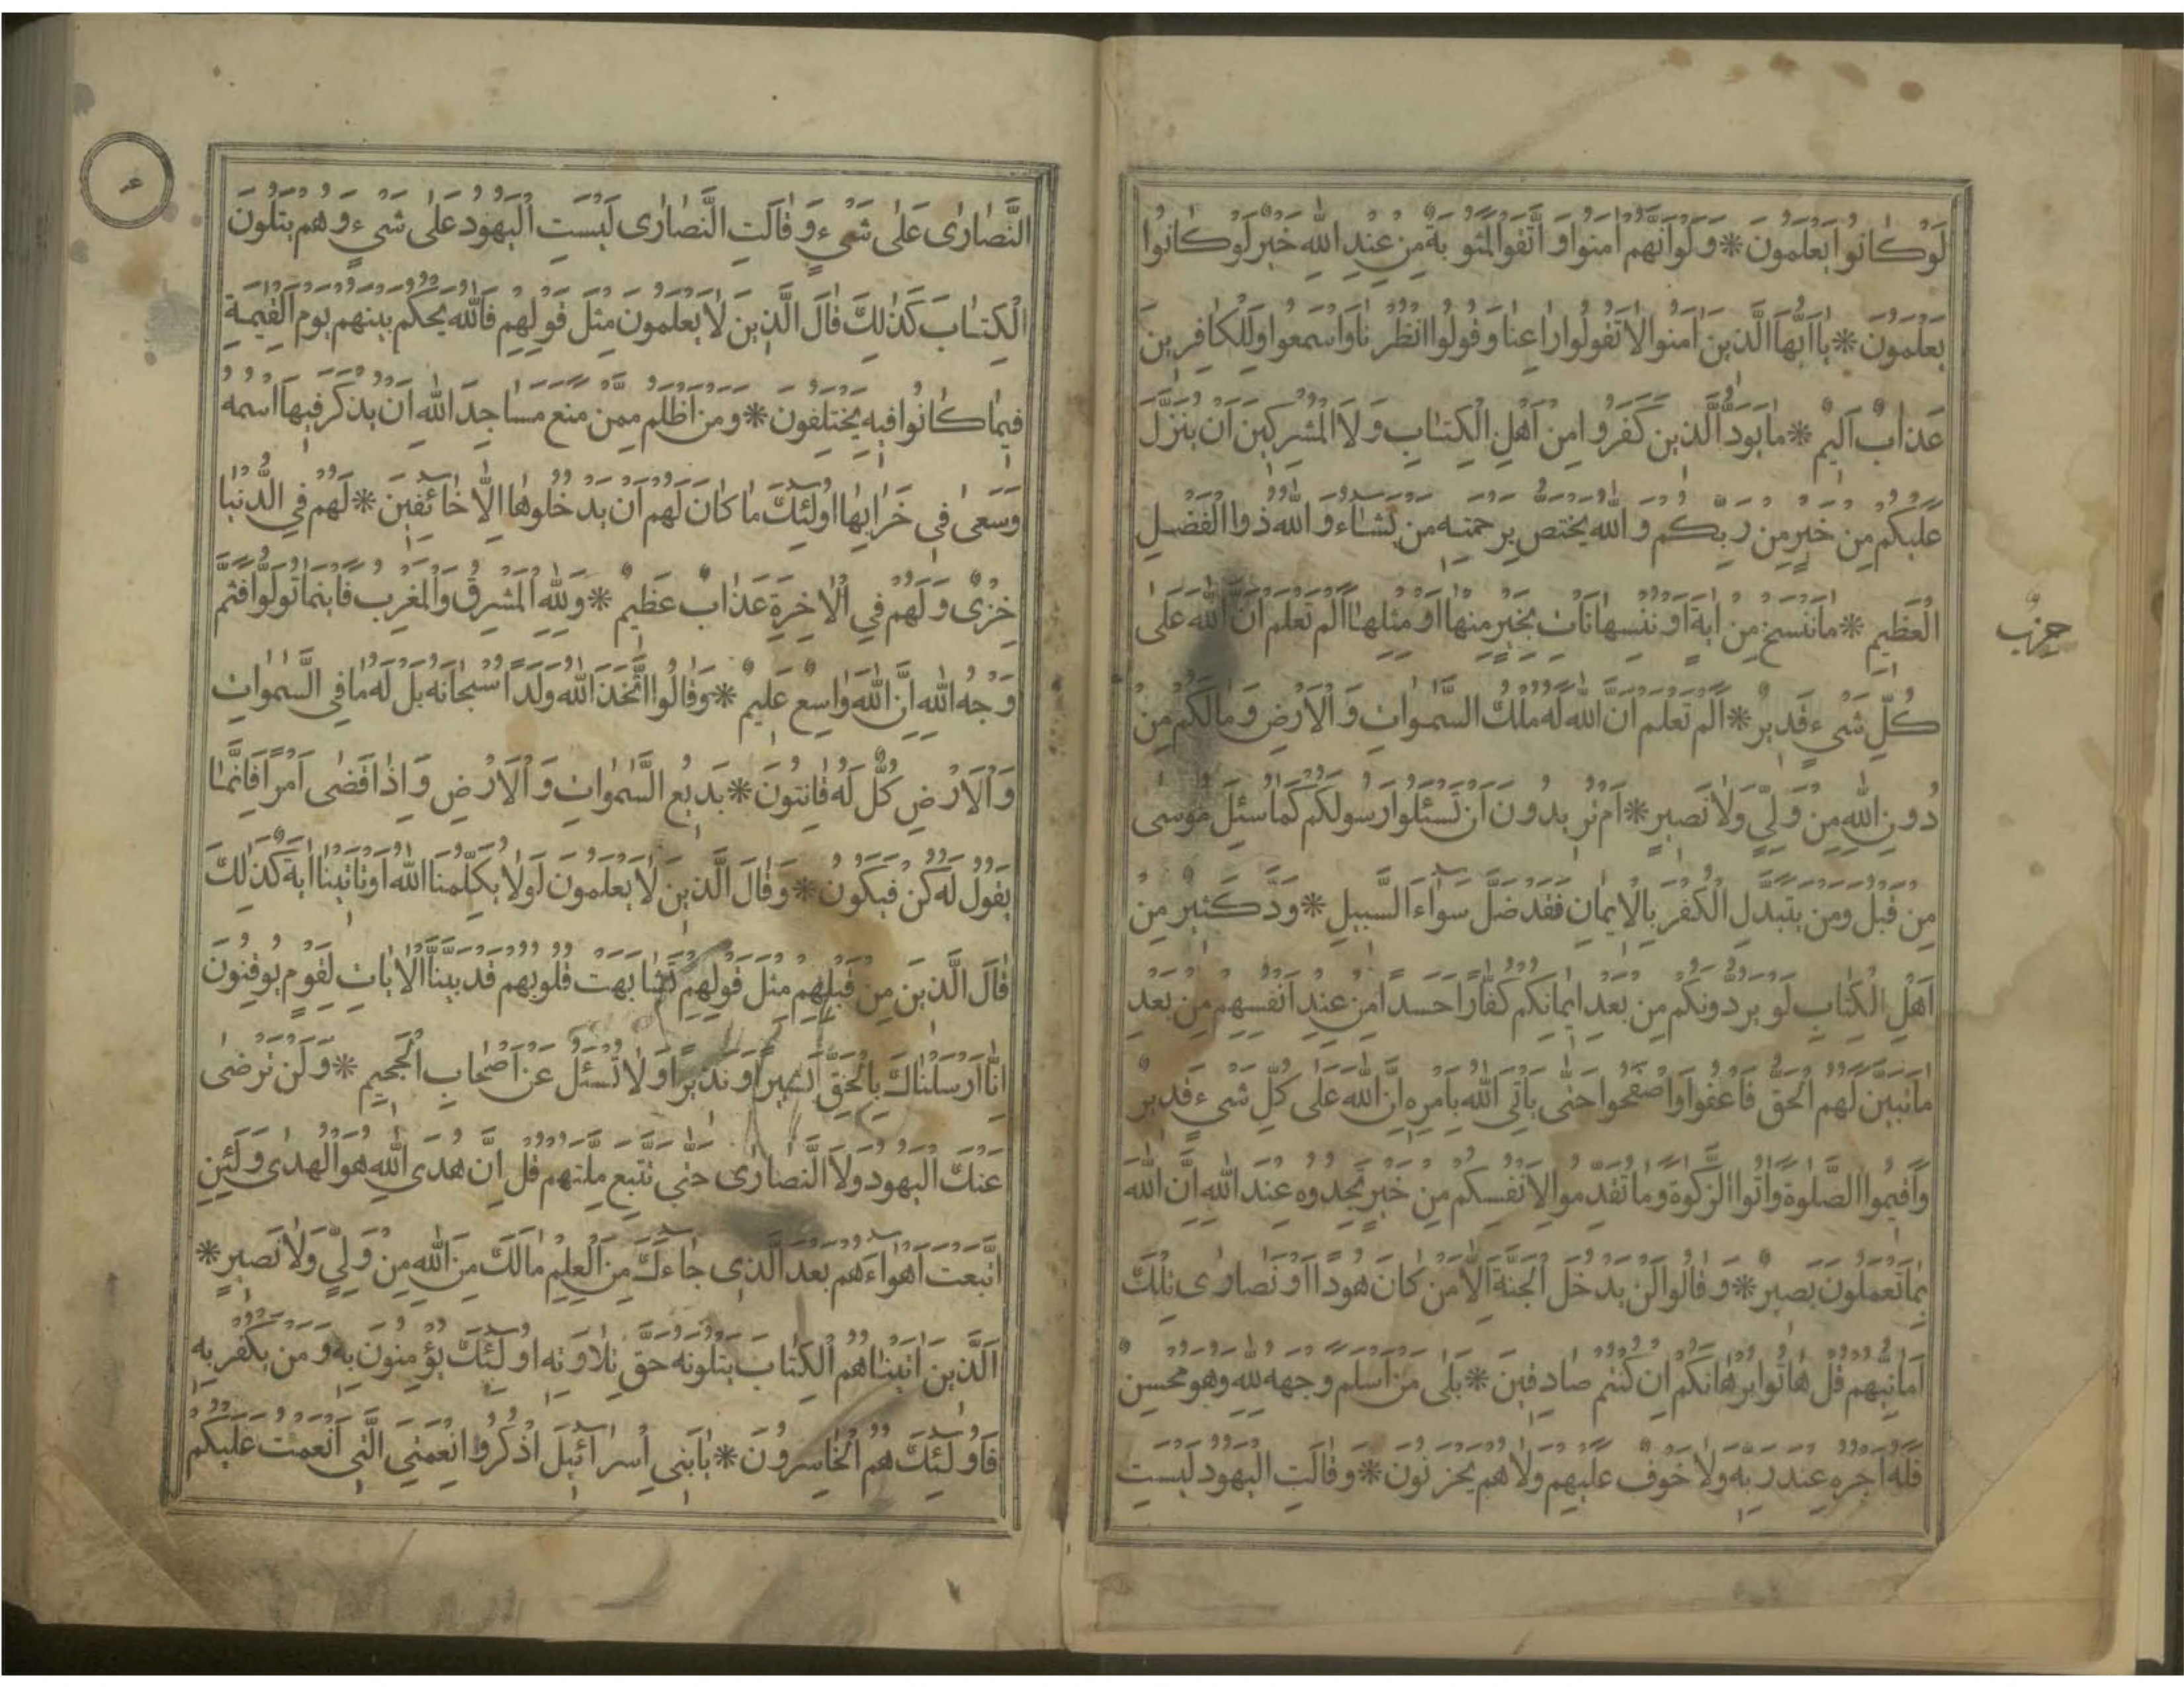 لَوْ كَانُوا يَعْلَمُونَ * وَلَوْ اَنَّهُمْ اٰمَنُوا وَاتَّقَوْا لَمَثُوبَةٌ مِنْ عِنْدِ اللّٰهِ خَيْرٌ لَوْ كَانُوا
يَعْلَمُونَ * يَا اَيُّهَا الَّذِينَ اٰمَنُوا لَا تَقُولُوا رَاعِنَا وَقُولُوا انْظُرْنَا وَاسْمَعُوا وَلِلْكَافِرِينَ
عَذَابٌ اَلِيمٌ * مَا يَوَدُّ الَّذِينَ كَفَرُوا مِنْ اَهْلِ الْكِتَابِ وَلَا الْمُشْرِكِينَ اَنْ يُنَزَّلَ
عَلَيْكُمْ مِنْ خَيْرٍ مِنْ رَبِّكُمْ وَاللّٰهُ يَخْتَصُّ بِرَحْمَتِهِ مَنْ يَشَاءُ وَاللّٰهُ ذُو الْفَضْلِ
الْعَظِيمِ * مَا نَنْسَخْ مِنْ اٰيَةٍ اَوْ نُنْسِهَا نَاْتِ بِخَيْرٍ مِنْهَا اَوْ مِثْلِهَا اَلَمْ تَعْلَمْ اَنَّ اللّٰهَ عَلٰى
حزب
كُلِّ شَيْءٍ قَدِيرٌ * اَلَمْ تَعْلَمْ اَنَّ اللّٰهَ لَهُ مُلْكُ السَّمٰوَاتِ وَالْاَرْضِ وَمَا لَكُمْ مِنْ
دُونِ اللّٰهِ مِنْ وَلِيٍّ وَلَا نَصِيرٍ * اَمْ تُرِيدُونَ اَنْ تَسْئَلُوا رَسُولَكُمْ كَمَا سُئِلَ مُوسٰى
مِنْ قَبْلُ وَمَنْ يَتَبَدَّلِ الْكُفْرَ بِالْاِيمَانِ فَقَدْ ضَلَّ سَوَاءَ السَّبِيلِ * وَدَّ كَثِيرٌ مِنْ
اَهْلِ الْكِتَابِ لَوْ يَرُدُّونَكُمْ مِنْ بَعْدِ اِيمَانِكُمْ كُفَّارًا حَسَدًا مِنْ عِنْدِ اَنْفُسِهِمْ مِنْ بَعْدِ
مَا تَبَيَّنَ لَهُمُ الْحَقُّ فَاعْفُوا وَاصْفَحُوا حَتّٰى يَاْتِيَ اللّٰهُ بِاَمْرِهِ اِنَّ اللّٰهَ عَلٰى كُلِّ شَيْءٍ قَدِيرٌ
وَاَقِيمُوا الصَّلٰوةَ وَاٰتُوا الزَّكٰوةَ وَمَا تُقَدِّمُوا لِاَنْفُسِكُمْ مِنْ خَيْرٍ تَجِدُوهُ عِنْدَ اللّٰهِ اِنَّ اللّٰهَ
بِمَا تَعْمَلُونَ بَصِيرٌ * وَقَالُوا لَنْ يَدْخُلَ الْجَنَّةَ اِلَّا مَنْ كَانَ هُودًا اَوْ نَصَارٰى تِلْكَ
اَمَانِيُّهُمْ قُلْ هَاتُوا بُرْهَانَكُمْ اِنْ كُنْتُمْ صَادِقِينَ * بَلٰى مَنْ اَسْلَمَ وَجْهَهُ لِلّٰهِ وَهُوَ مُحْسِنٌ
فَلَهُ اَجْرُهُ عِنْدَ رَبِّهِ وَلَا خَوْفٌ عَلَيْهِمْ وَلَا هُمْ يَحْزَنُونَ * وَقَالَتِ الْيَهُودُ لَيْسَتِ
النَّصَارٰى عَلٰى شَيْءٍ وَقَالَتِ النَّصَارٰى لَيْسَتِ الْيَهُودُ عَلٰى شَيْءٍ وَهُمْ يَتْلُونَ
الْكِتَابَ كَذٰلِكَ قَالَ الَّذِينَ لَا يَعْلَمُونَ مِثْلَ قَوْلِهِمْ فَاللّٰهُ يَحْكُمُ بَيْنَهُمْ يَوْمَ الْقِيٰمَةِ
فِيمَا كَانُوا فِيهِ يَخْتَلِفُونَ * وَمَنْ اَظْلَمُ مِمَّنْ مَنَعَ مَسَاجِدَ اللّٰهِ اَنْ يُذْكَرَ فِيهَا اسْمُهُ
وَسَعٰى فِي خَرَابِهَا اُولٰئِكَ مَا كَانَ لَهُمْ اَنْ يَدْخُلُوهَا اِلَّا خَائِفِينَ * لَهُمْ فِي الدُّنْيَا
خِزْيٌ وَلَهُمْ فِي الْاٰخِرَةِ عَذَابٌ عَظِيمٌ * وَلِلّٰهِ الْمَشْرِقُ وَالْمَغْرِبُ فَاَيْنَمَا تُوَلُّوا فَثَمَّ
وَجْهُ اللّٰهِ اِنَّ اللّٰهَ وَاسِعٌ عَلِيمٌ * وَقَالُوا اتَّخَذَ اللّٰهُ وَلَدًا سُبْحَانَهُ بَلْ لَهُ مَا فِي السَّمٰوَاتِ
وَالْاَرْضِ كُلٌّ لَهُ قَانِتُونَ * بَدِيعُ السَّمٰوَاتِ وَالْاَرْضِ وَاِذَا قَضٰى اَمْرًا فَاِنَّمَا
يَقُولُ لَهُ كُنْ فَيَكُونُ * وَقَالَ الَّذِينَ لَا يَعْلَمُونَ لَوْلَا يُكَلِّمُنَا اللّٰهُ اَوْ تَاْتِينَا اٰيَةٌ كَذٰلِكَ
قَالَ الَّذِينَ مِنْ قَبْلِهِمْ مِثْلَ قَوْلِهِمْ تَشَابَهَتْ قُلُوبُهُمْ قَدْ بَيَّنَّا الْاٰيَاتِ لِقَوْمٍ يُوقِنُونَ
اِنَّا اَرْسَلْنَاكَ بِالْحَقِّ بَشِيرًا وَنَذِيرًا وَلَا تُسْئَلُ عَنْ اَصْحَابِ الْجَحِيمِ * وَلَنْ تَرْضٰى
عَنْكَ الْيَهُودُ وَلَا النَّصَارٰى حَتّٰى تَتَّبِعَ مِلَّتَهُمْ قُلْ اِنَّ هُدَى اللّٰهِ هُوَ الْهُدٰى وَلَئِنِ
اتَّبَعْتَ اَهْوَاءَهُمْ بَعْدَ الَّذِي جَاءَكَ مِنَ الْعِلْمِ مَا لَكَ مِنَ اللّٰهِ مِنْ وَلِيٍّ وَلَا نَصِيرٍ *
اَلَّذِينَ اٰتَيْنَاهُمُ الْكِتَابَ يَتْلُونَهُ حَقَّ تِلَاوَتِهِ اُولٰئِكَ يُؤْمِنُونَ بِهِ وَمَنْ يَكْفُرْ بِهِ
فَاُولٰئِكَ هُمُ الْخَاسِرُونَ * يَا بَنِي اِسْرَائِيلَ اذْكُرُوا نِعْمَتِيَ الَّتِي اَنْعَمْتُ عَلَيْكُمْ